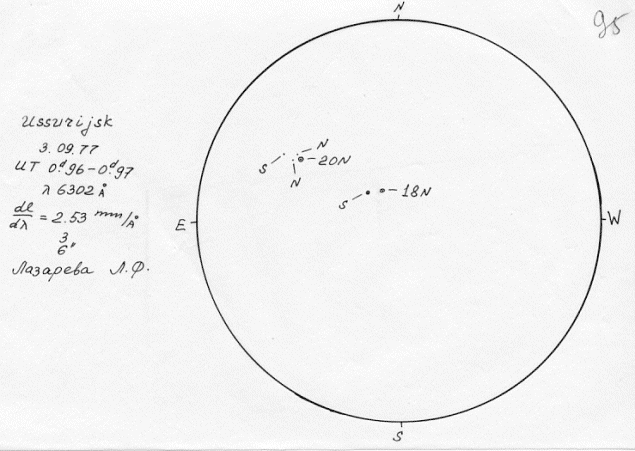 95
N
Ussurijsk
3.09.77
UT 0.ᵈ96-0.ᵈ97
λ 6302 Å
dl/dλ = 2.53 mm/Å
3
6"
Лазарева Л.Ф.
N
S
20N
N
18N
S
E
W
S